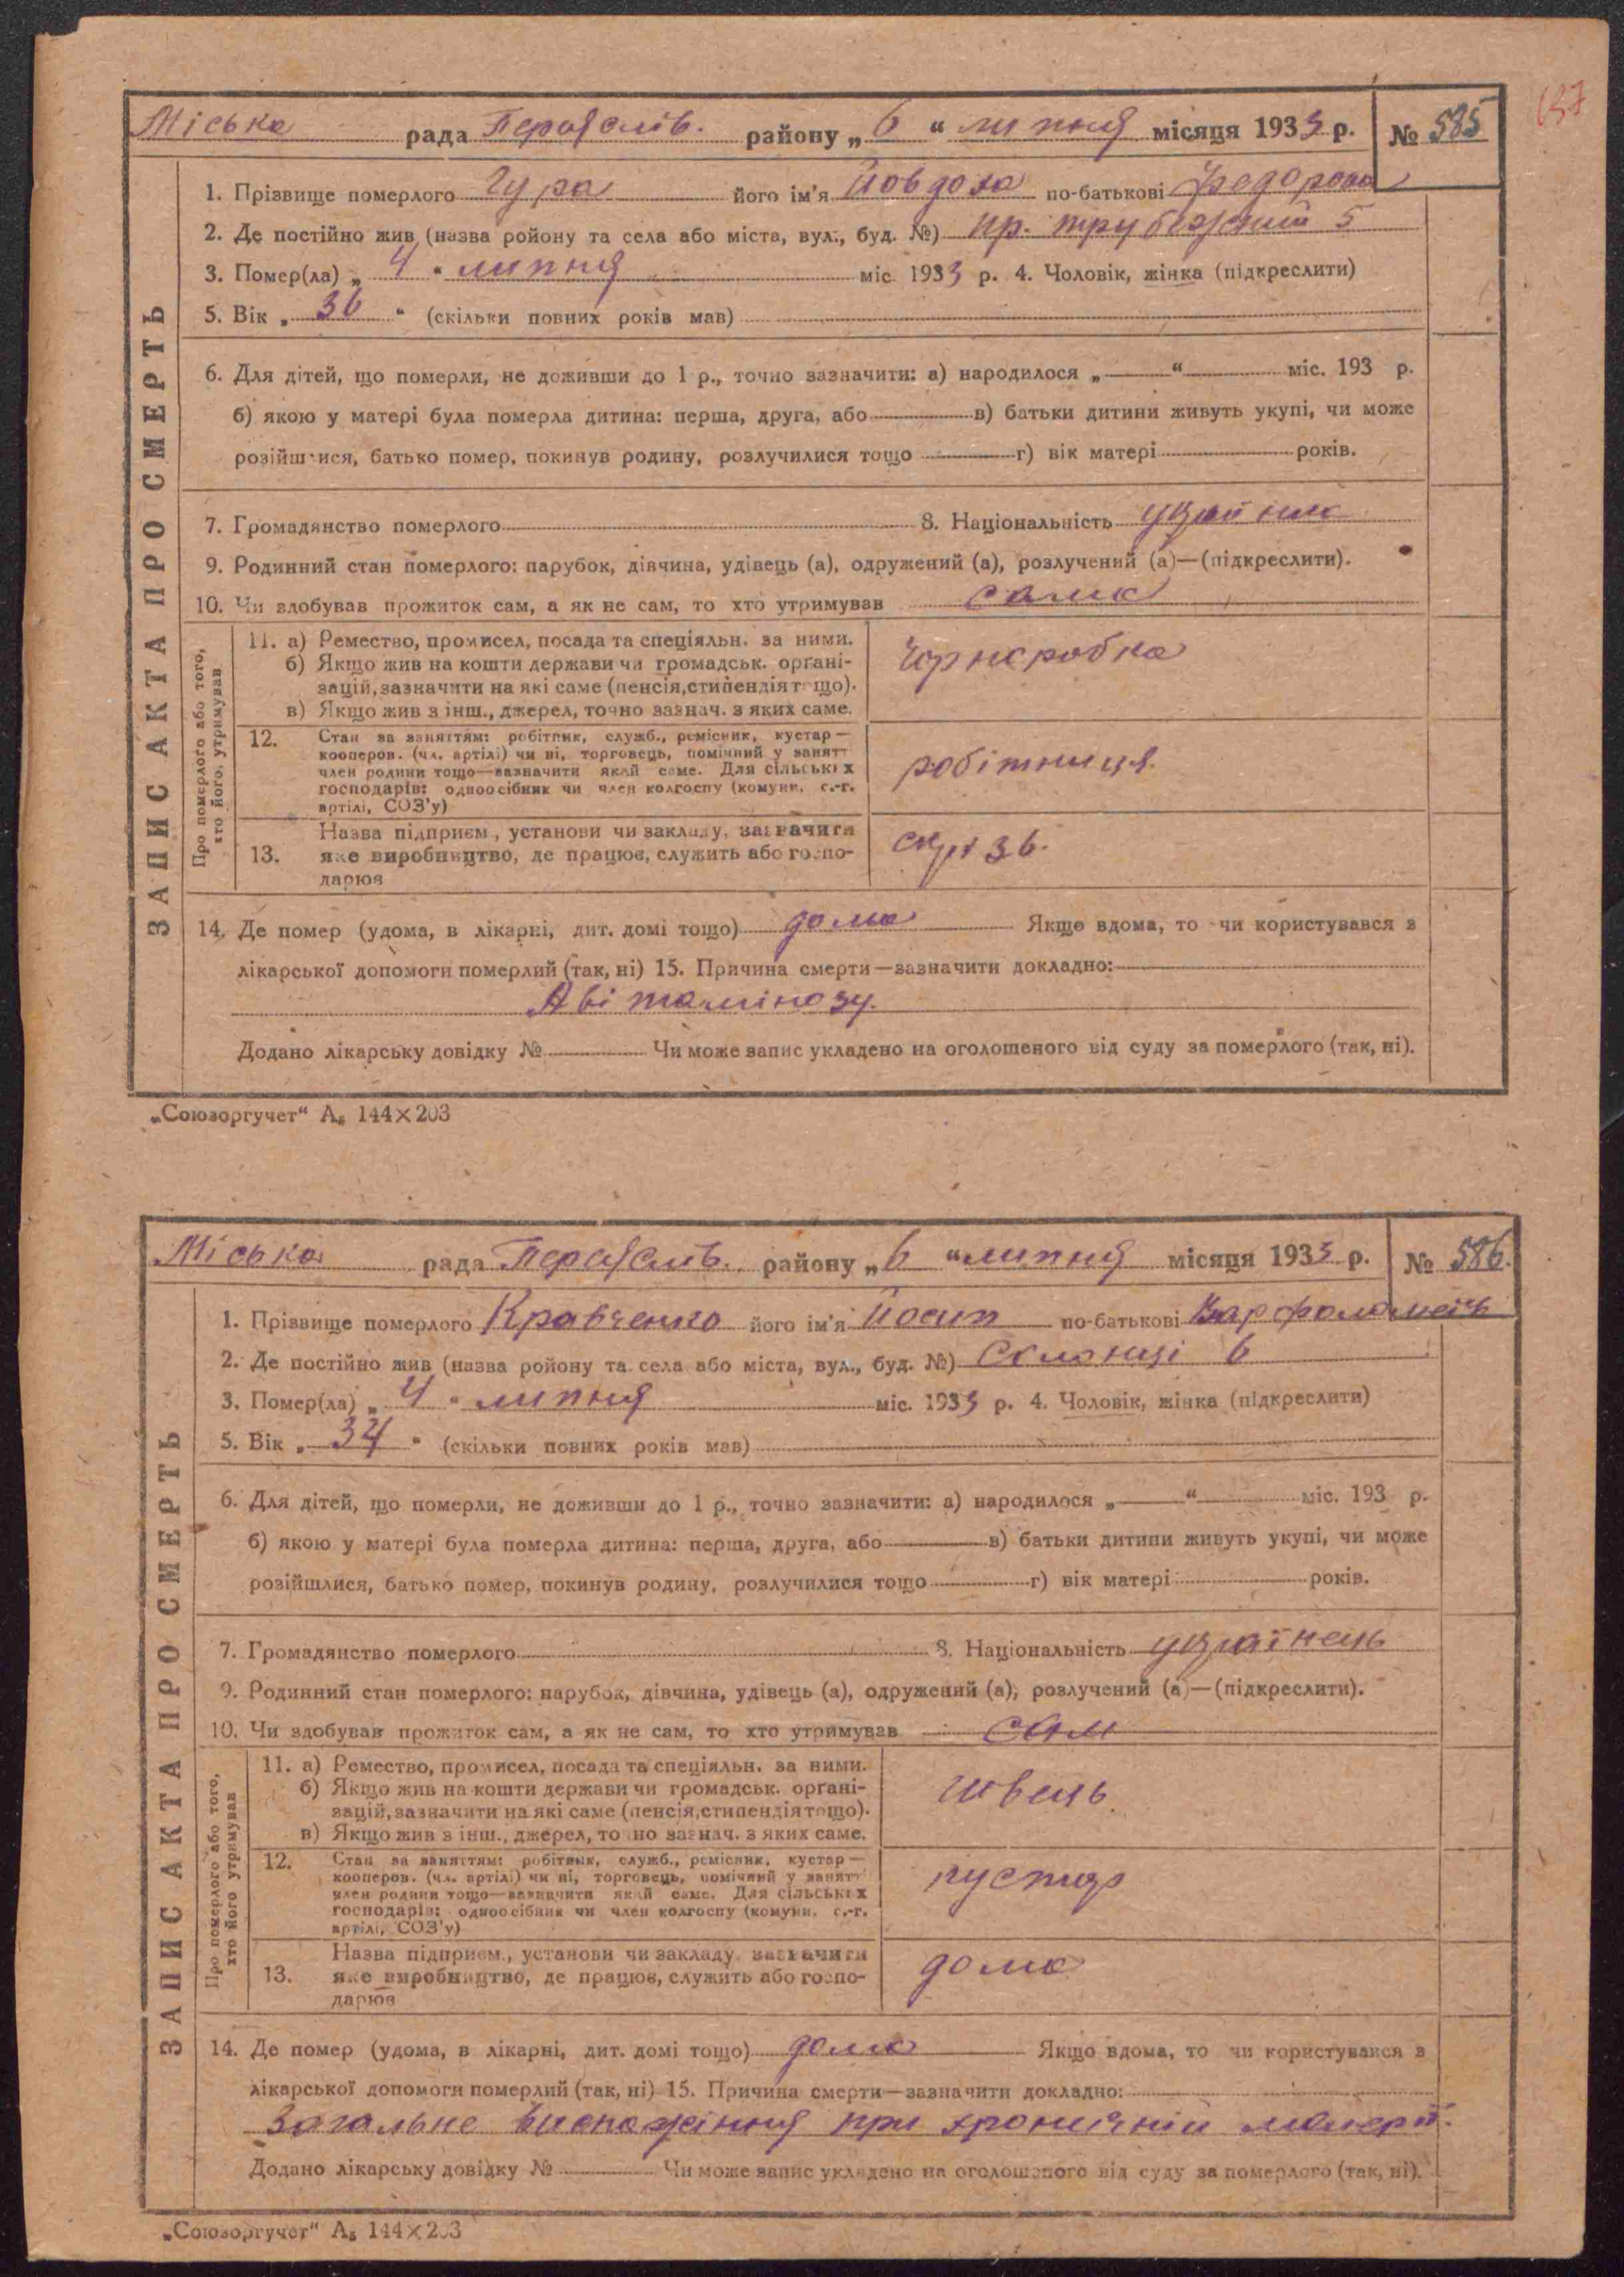 137
Міська рада Переяслів. району „6“ липня місяця 1933 р. № 585
ЗАПИС АКТА ПРО СМЕРТЬ
1. Прізвище померлого Чура його ім'я Йовдоха по-батькові Федоровна
2. Де постійно жив (назва ройону та села або міста, вул., буд. №) пр. трубежний 5
3. Помер(ла) „4" липня міс. 1933 р. 4. Чоловік, жінка (підкреслити)
5. Вік „36" (скільки повних років мав)
6. Для дітей, що померли, не доживши до 1 р., точно зазначити: а) народилося „ “ міс. 193 р.
б) якою у матері була померла дитина: перша, друга, або в) батьки дитини живуть укупі, чи може
розійшлися, батько помер, покинув родину, розлучилися тощо г) вік матері років.
7. Громадянство померлого 8. Національність
9. Родинний стан померлого: парубок, дівчина, удівець (а), одружений (а), розлучений (а)—(підкреслити).
10. Чи здобував прожиток сам, а як не сам, то хто утримував сама
Про померлого або того, хто його утримував
11. а) Ремество, промисел, посада та спеціяльн. за ними.
б) Якщо жив на кошти держави чи громадськ. орґані-
зацій, зазначити на які саме (пенсія, стипендія тощо).
в) Якщо жив з інш., джерел, точно зазнач. з яких саме.
Чорноробка
12. Стан за заняттям: робітник, служб., ремісник, кустар—
кооперов. (чл. артілі) чи ні, торговець, помічний у занятт
член родини тощо—зазначити який саме. Для сільських
господарів: одноосібник чи член колгоспу (комуни, с.-г.
артілі, СОЗ'у)
робітниця.
13. Назва підприєм., установи чи закладу, зазначити
яке виробництво, де працює, служить або госпо-
дарює
14. Де помер (удома, в лікарні, дит. домі тощо) дома Якщо вдома, то чи користувався з
лікарської допомоги померлий (так, ні) 15. Причина смерти—зазначити докладно:
Авітамінозу.
Додано лікарську довідку № Чи може запис укладено на оголошеного від суду за померлого (так, ні).
„Союзоргучет“ А₅ 144×203
Міська рада Переяслів. району „6“ липня місяця 1933 р. № 586.
ЗАПИС АКТА ПРО СМЕРТЬ
1. Прізвище померлого Кравченко його ім'я Йосип по-батькові Варфоломеїв
2. Де постійно жив (назва ройону та села або міста, вул., буд. №) 6
3. Помер(ла) „4" липня міс. 1933 р. 4. Чоловік, жінка (підкреслити)
5. Вік „34" (скільки повних років мав)
6. Для дітей, що померли, не доживши до 1 р., точно зазначити: а) народилося „ “ міс. 193 р.
б) якою у матері була померла дитина: перша, друга, або в) батьки дитини живуть укупі, чи може
розійшлися, батько помер, покинув родину, розлучилися тощо г) вік матері років.
7. Громадянство померлого 8. Національність українець
9. Родинний стан померлого: парубок, дівчина, удівець (а), одружений (а), розлучений (а)—(підкреслити).
10. Чи здобував прожиток сам, а як не сам, то хто утримував сам
Про померлого або того, хто його утримував
11. а) Ремество, промисел, посада та спеціяльн. за ними.
б) Якщо жив на кошти держави чи громадськ. орґані-
зацій, зазначити на які саме (пенсія, стипендія тощо).
в) Якщо жив з інш., джерел, точно зазнач. з яких саме.
швець
12. Стан за заняттям: робітник, служб., ремісник, кустар—
кооперов. (чл. артілі) чи ні, торговець, помічний у занятт
член родини тощо—зазначити який саме. Для сільських
господарів: одноосібник чи член колгоспу (комуни, с.-г.
артілі, СОЗ'у)
кустар
13. Назва підприєм., установи чи закладу, зазначити
яке виробництво, де працює, служить або госпо-
дарює
дома
14. Де помер (удома, в лікарні, дит. домі тощо) дома Якщо вдома, то чи користувався з
лікарської допомоги померлий (так, ні) 15. Причина смерти—зазначити докладно:
Загальне виснажіння при хронічній малерії.
Додано лікарську довідку № Чи може запис укладено на оголошеного від суду за померлого (так, ні).
„Союзоргучет“ А₅ 144×203